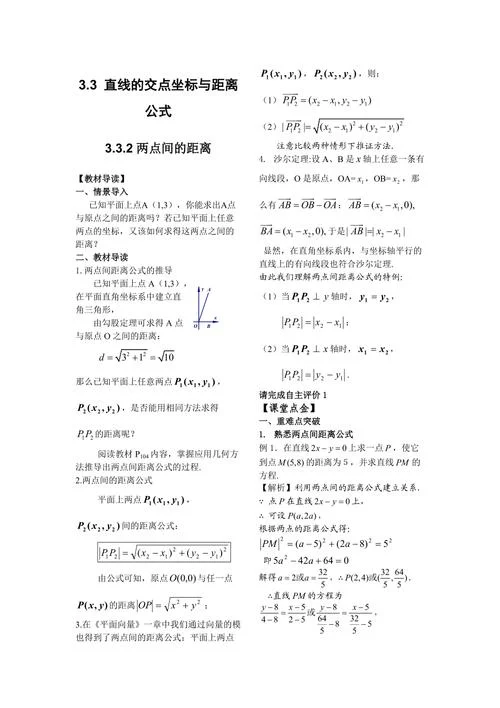 3.3 直线的交点坐标与距离
公式
3.3.2 两点间的距离
【教材导读】
一、情景导入
已知平面上点A（1,3），你能求出A点
与原点之间的距离吗？若已知平面上任意
两点的坐标，又该如何求得这两点之间的
距离？
二、教材导读
1. 两点间距离公式的推导
已知平面上点 A（1,3），
在平面直角坐标系中建立直
角三角形，
由勾股定理可求得 A 点
与原点 O 之间的距离：
Y A
x
O B
d = 3² + 1² = 10
那么已知平面上任意两点P₁(x₁, y₁)，
P₂(x₂, y₂)，是否能用相同方法求得
P₁P₂ 的距离呢？
阅读教材 P₁₀₄ 内容，掌握应用几何方
法推导出两点间距离公式的过程.
2.两点间的距离公式
平面上两点P₁(x₁, y₁)，
P₂(x₂, y₂)间的距离公式：
P₁P₂ = (x₂ − x₁)² + (y₂ − y₁)²
由公式可知，原点O(0,0)与任一点
P(x, y)的距离 OP = x² + y²；
3.在《平面向量》一章中我们通过向量的模
也得到了两点间的距离公式：平面上两点
P₁(x₁, y₁)，P₂(x₂, y₂)，则：
（1）P₁P₂ = (x₂ − x₁, y₂ − y₁)
（2）| P₁P₂ |= √(x₂ − x₁)² + (y₂ − y₁)²
注意比较两种情形下推证方法.
4. 沙尔定理:设 A、B 是 x 轴上任意一条有
向线段，O 是原点，OA= x₁，OB= x₂，那
么有 AB = OB − OA；AB = (x₂ − x₁,0),
BA = (x₁ − x₂,0), 于是| AB |=| x₂ − x₁ |
显然，在直角坐标系内，与坐标轴平行的
直线上的有向线段也符合沙尔定理.
由此我们理解两点间距离公式的特例:
（1）当P₁P₂ ⊥ y 轴时，y₁ = y₂，
|P₁P₂| = |x₂ − x₁|；
（2）当P₁P₂ ⊥ x 轴时，x₁ = x₂，
|P₁P₂| = |y₂ − y₁|.
请完成自主评价 1
【课堂点金】
一、重难点突破
1. 熟悉两点间距离公式
例 1．在直线2x − y = 0上求一点 P，使它
到点 M(5,8) 的距离为 5，并求直线 PM 的
方程.
【解析】利用两点间的距离公式建立关系.
∵ 点 P 在直线2x − y = 0上，
∴ 可设 P(a,2a)．
根据两点的距离公式得:
PM² = (a − 5)² + (2a − 8)² = 5²
即5a² − 42a + 64 = 0
解得 a = 2或a = 32/5，∴ P(2,4)或(32/5, 64/5).
∴直线 PM 的方程为
(y − 8)/(4 − 8) = (x − 5)/(2 − 5) 或 (y − 8)/(64/5 − 8) = (x − 5)/(32/5 − 5)．